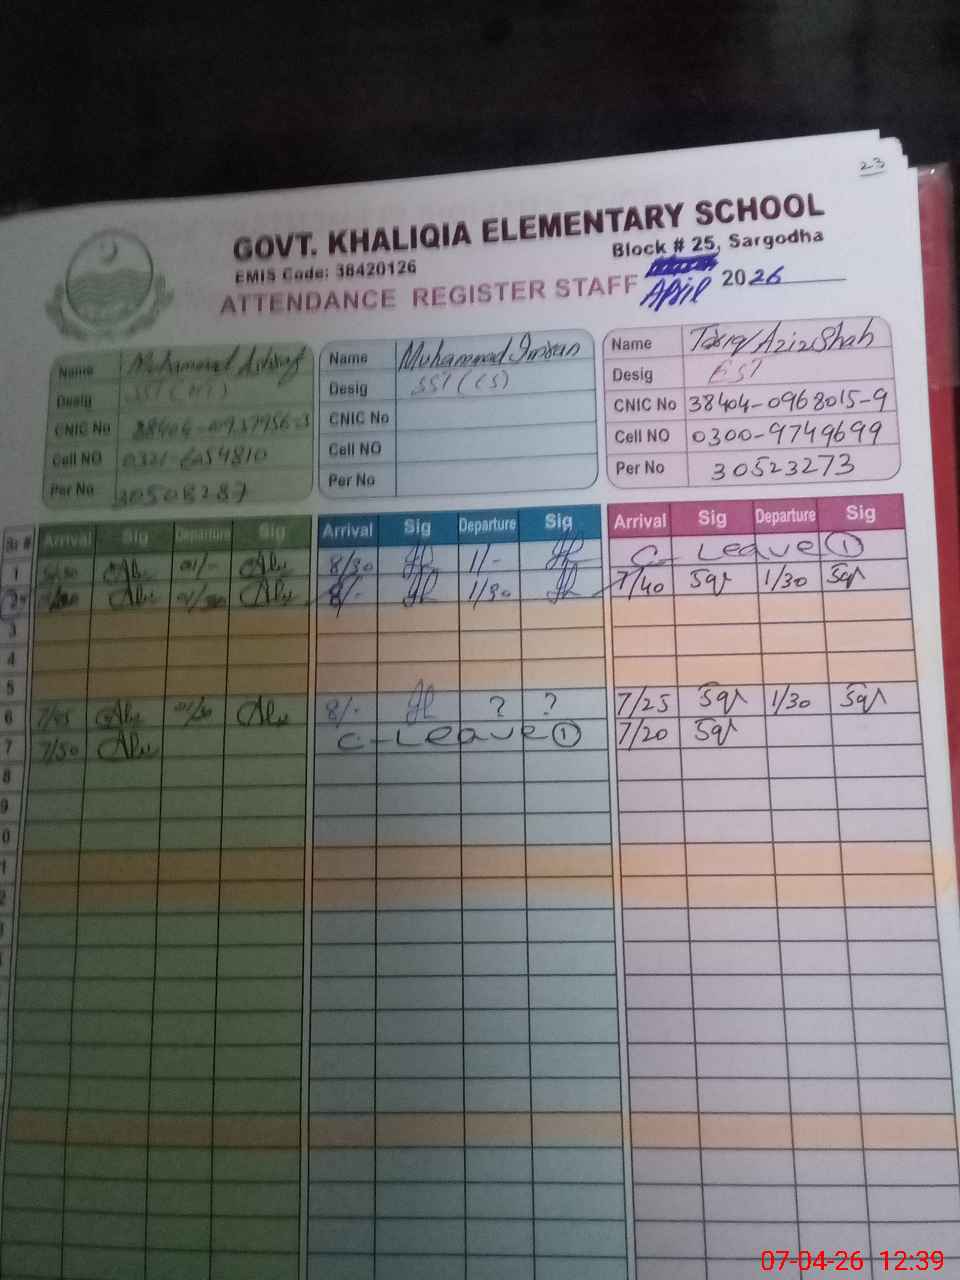 23
GOVT. KHALIQIA ELEMENTARY SCHOOL
Block # 25, Sargodha
EMIS Code: 38420126
ATTENDANCE REGISTER STAFF April 2026
Name Muhammad Ashraf Name Muhammad Imran Name Tariq Aziz Shah
Desig SST Desig SST (CS) Desig EST
CNIC No CNIC No CNIC No 38404-0968015-9
Cell NO 0321-6054810 Cell NO Cell NO 0300-9749699
Per No 30508287 Per No Per No 30523273
Sr # Arrival Sig Departure Sig Arrival Sig Departure Sig Arrival Sig Departure Sig
1 01/- 8/30 1/- C- Leave 1
2 8/- 1/30 7/40 Sqr 1/30 Sqr
3
4
5
6 8/- ? ? 7/25 Sqr 1/30 Sqr
7 7/50 C-Leave 1 7/20 Sqr
8
9
0
1
2
07-04-26 12:39